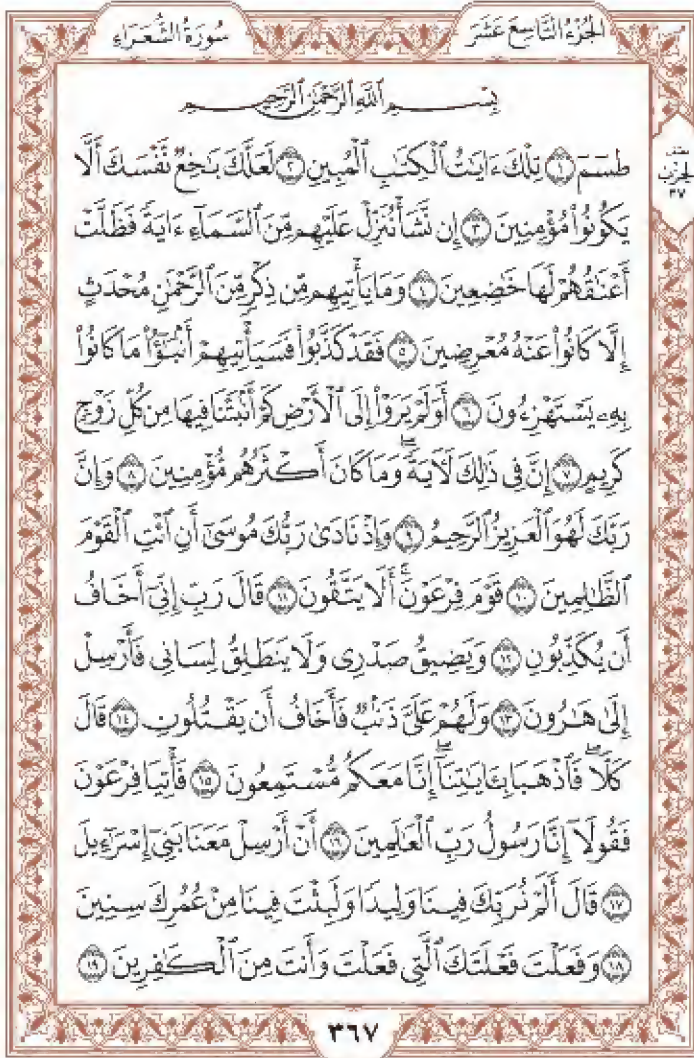 الجزء التاسع عشر
سورة الشعراء
بِسْمِ ٱللَّهِ ٱلرَّحْمَٰنِ ٱلرَّحِيمِ
طسٓمٓ ١ تِلْكَ ءَايَٰتُ ٱلْكِتَٰبِ ٱلْمُبِينِ ٢ لَعَلَّكَ بَٰخِعٌ نَّفْسَكَ أَلَّا
يَكُونُوا۟ مُؤْمِنِينَ ٣ إِن نَّشَأْ نُنَزِّلْ عَلَيْهِم مِّنَ ٱلسَّمَآءِ ءَايَةً فَظَلَّتْ
أَعْنَٰقُهُمْ لَهَا خَٰضِعِينَ ٤ وَمَا يَأْتِيهِم مِّن ذِكْرٍ مِّنَ ٱلرَّحْمَٰنِ مُحْدَثٍ
إِلَّا كَانُوا۟ عَنْهُ مُعْرِضِينَ ٥ فَقَدْ كَذَّبُوا۟ فَسَيَأْتِيهِمْ أَنۢبَٰٓؤُا۟ مَا كَانُوا۟
بِهِۦ يَسْتَهْزِءُونَ ٦ أَوَلَمْ يَرَوْا۟ إِلَى ٱلْأَرْضِ كَمْ أَنۢبَتْنَا فِيهَا مِن كُلِّ زَوْجٍ
كَرِيمٍ ٧ إِنَّ فِى ذَٰلِكَ لَءَايَةً ۖ وَمَا كَانَ أَكْثَرُهُم مُّؤْمِنِينَ ٨ وَإِنَّ
رَبَّكَ لَهُوَ ٱلْعَزِيزُ ٱلرَّحِيمُ ٩ وَإِذْ نَادَىٰ رَبُّكَ مُوسَىٰٓ أَنِ ٱئْتِ ٱلْقَوْمَ
ٱلظَّٰلِمِينَ ١٠ قَوْمَ فِرْعَوْنَ ۚ أَلَا يَتَّقُونَ ١١ قَالَ رَبِّ إِنِّىٓ أَخَافُ
أَن يُكَذِّبُونِ ١٢ وَيَضِيقُ صَدْرِى وَلَا يَنطَلِقُ لِسَانِى فَأَرْسِلْ
إِلَىٰ هَٰرُونَ ١٣ وَلَهُمْ عَلَىَّ ذَنۢبٌ فَأَخَافُ أَن يَقْتُلُونِ ١٤ قَالَ
كَلَّا ۖ فَٱذْهَبَا بِـَٔايَٰتِنَآ ۖ إِنَّا مَعَكُم مُّسْتَمِعُونَ ١٥ فَأْتِيَا فِرْعَوْنَ
فَقُولَآ إِنَّا رَسُولُ رَبِّ ٱلْعَٰلَمِينَ ١٦ أَنْ أَرْسِلْ مَعَنَا بَنِىٓ إِسْرَٰٓءِيلَ
١٧ قَالَ أَلَمْ نُرَبِّكَ فِينَا وَلِيدًا وَلَبِثْتَ فِينَا مِنْ عُمُرِكَ سِنِينَ
١٨ وَفَعَلْتَ فَعْلَتَكَ ٱلَّتِى فَعَلْتَ وَأَنتَ مِنَ ٱلْكَٰفِرِينَ ١٩
نصف
الحزب
٣٧
٣٦٧